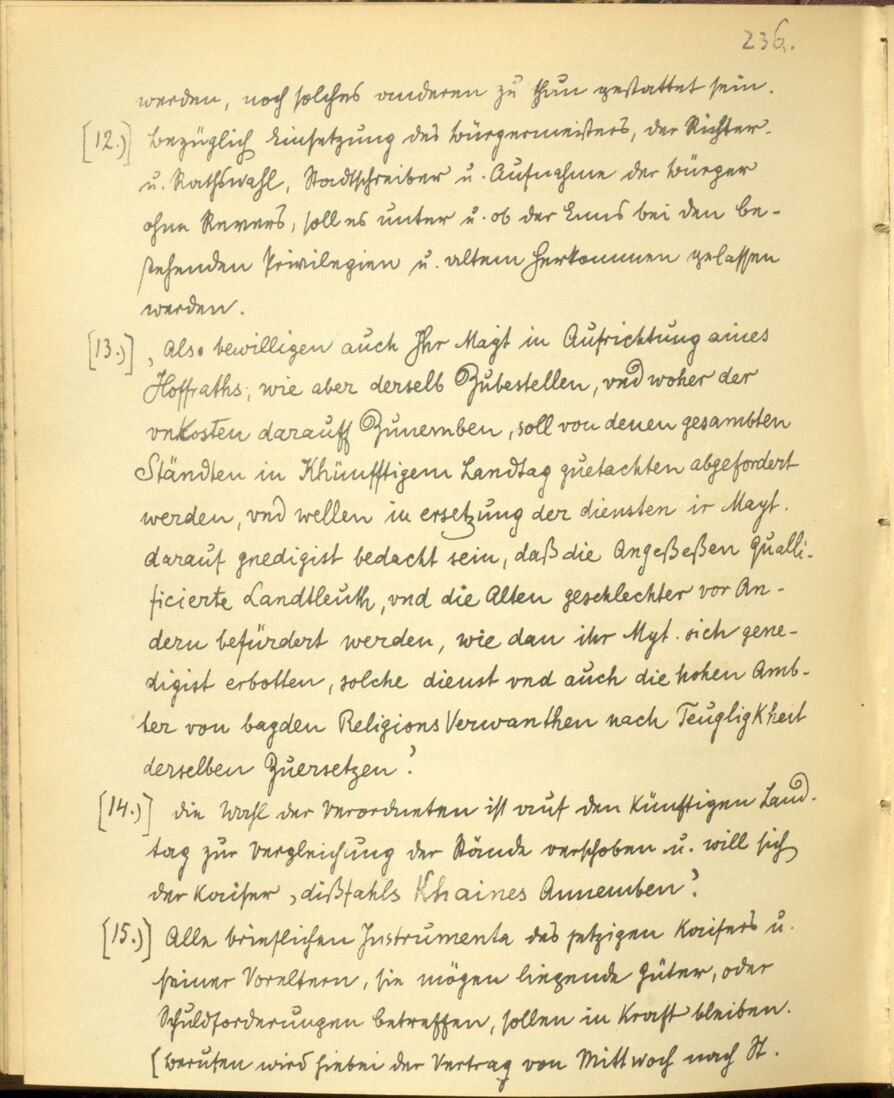 236.
werden, noch solches anderen zu thun gestattet sein.
[12.)] bezüglich Einsetzung des Bürgermeisters, der Richter-
u. Rathswahl, Stadtschreiber u. Aufnahme der Bürger
ohne Revers, soll es unter u. ob der Enns bei den be-
stehenden Privilegien u. altem Herkommen gelassen
werden.
[13.)] „Also bewilligen auch Ihr Mayt in Aufrichtung aines
Hoffraths, wie aber derselb Zubestellen, vnd woher der
vnkosten darauff Zunemben, soll von denen gesambten
Ständten in Khünfftigem Landtag guetachten abgefordert
werden, vnd wellen in ersetzung der diensten ir Mayt.
darauf gnedigist bedacht sein, daß die Angeßeßen Qualli-
ficierte Landtleuth, vnd die Alten geschlechter vor An-
dern befürdert werden, wie dan ihr Myt. sich gene-
digist erbotten, solche dienst vnd auch die hohen Amb-
ter von bayden Religions Verwanthen nach Teugligkheit
derselben Zuersetzen.“
[14.)] die Wahl der Verordneten ist auf den künftigen Land-
tag zur Vergleichung der Stände verschoben u. will sich
der Kaiser „dißfahls Khaines Annemben.“
[15.)] Alle brieflichen Instrumenta des jetzigen Kaisers u.
seiner Voreltern, sie mögen liegende Güter, oder
Schuldforderungen betreffen, sollen in Kraft bleiben.
(berufen wird hiebei der Vertrag von Mittwoch nach St.